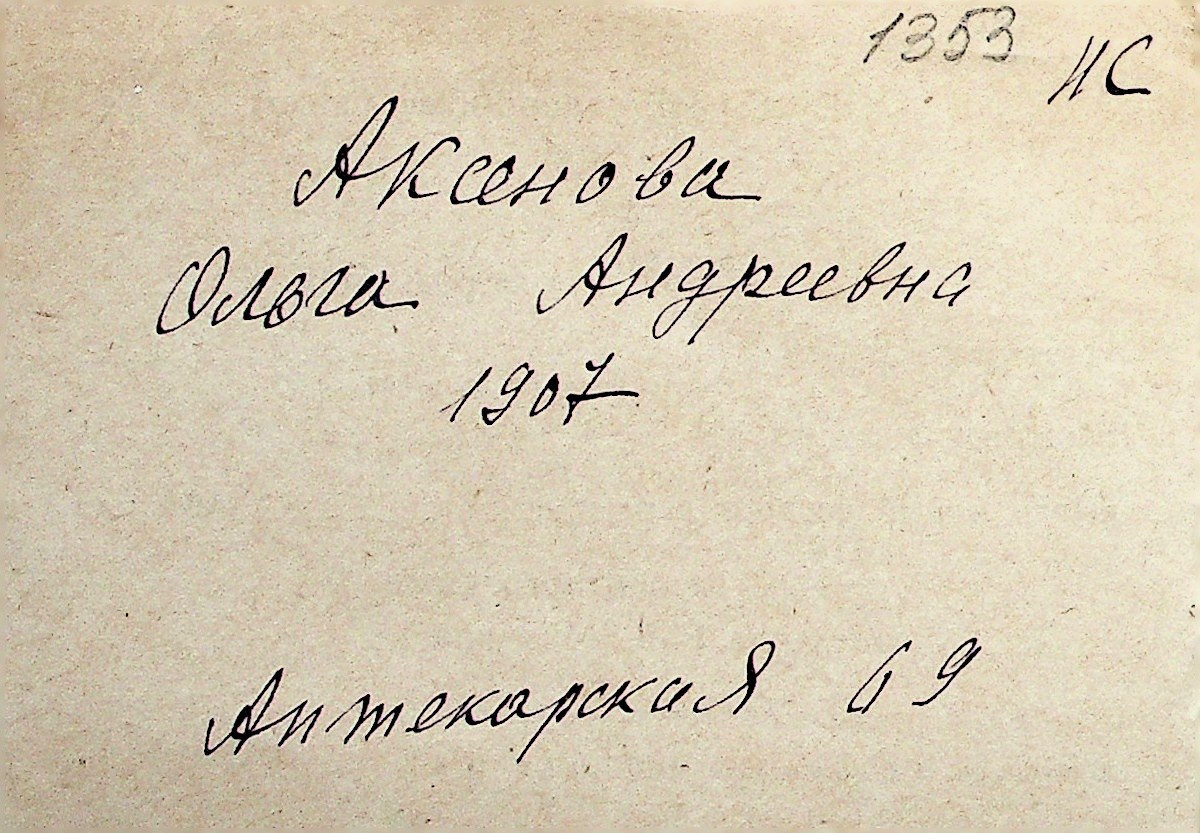 1353 ИС
Аксенова
Ольга Андреевна
1907
Аптекарская 69